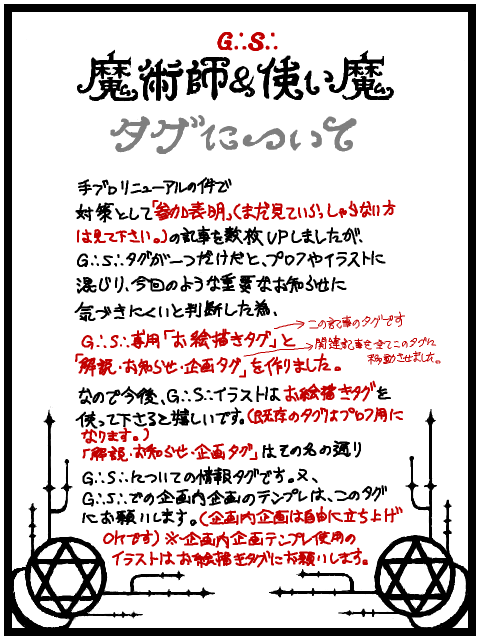 G∴S∴
魔術師&使い魔
タグについて
手ブロリニューアルの件で
対策として「参加表明」(まだ見ていらっしゃらない方
は見て下さい。)の記事を数枚UPしましたが、
G∴S∴タグが一つだけだと、プロフやイラストに
混じり、今回のような重要なお知らせに
気づきにくいと判断した為、
G∴S∴専用「お絵描きタグ」と
→この記事のタグです
「解説・お知らせ・企画タグ」を作りました。
→関連記事を全てこのタグに
移動させました。
なので今後、G∴S∴イラストはお絵描きタグを
使って下さると嬉しいです。(既存のタグはプロフ用に
なります。)
「解説・お知らせ・企画タグ」はその名の通り
G∴S∴についての情報タグです。又、
G∴S∴での企画内企画のテンプレは、このタグ
にお願いします。(企画内企画は自由に立ち上げ
OKです)※企画内企画テンプレ使用の
イラストはお絵描きタグにお願いします。